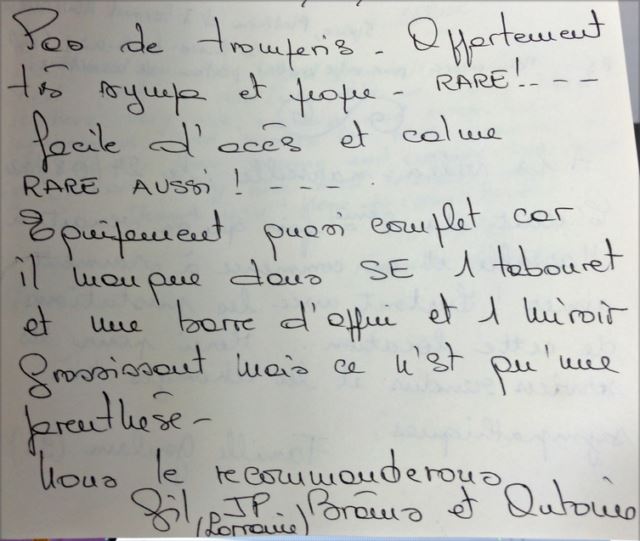 Pas de tromperis - Appartement
très sympa et propre - RARE!---
facile d'accès et calme
RARE AUSSI ! - - - .
Equipement quasi complet car
il manque dans SE 1 tabouret
et une barre d'appui et 1 miroir
grossissant mais ce n'est qu'une
parenthèse -
Nous le recommanderons
Gil, JP Brams et Antoine
(Lorraine)